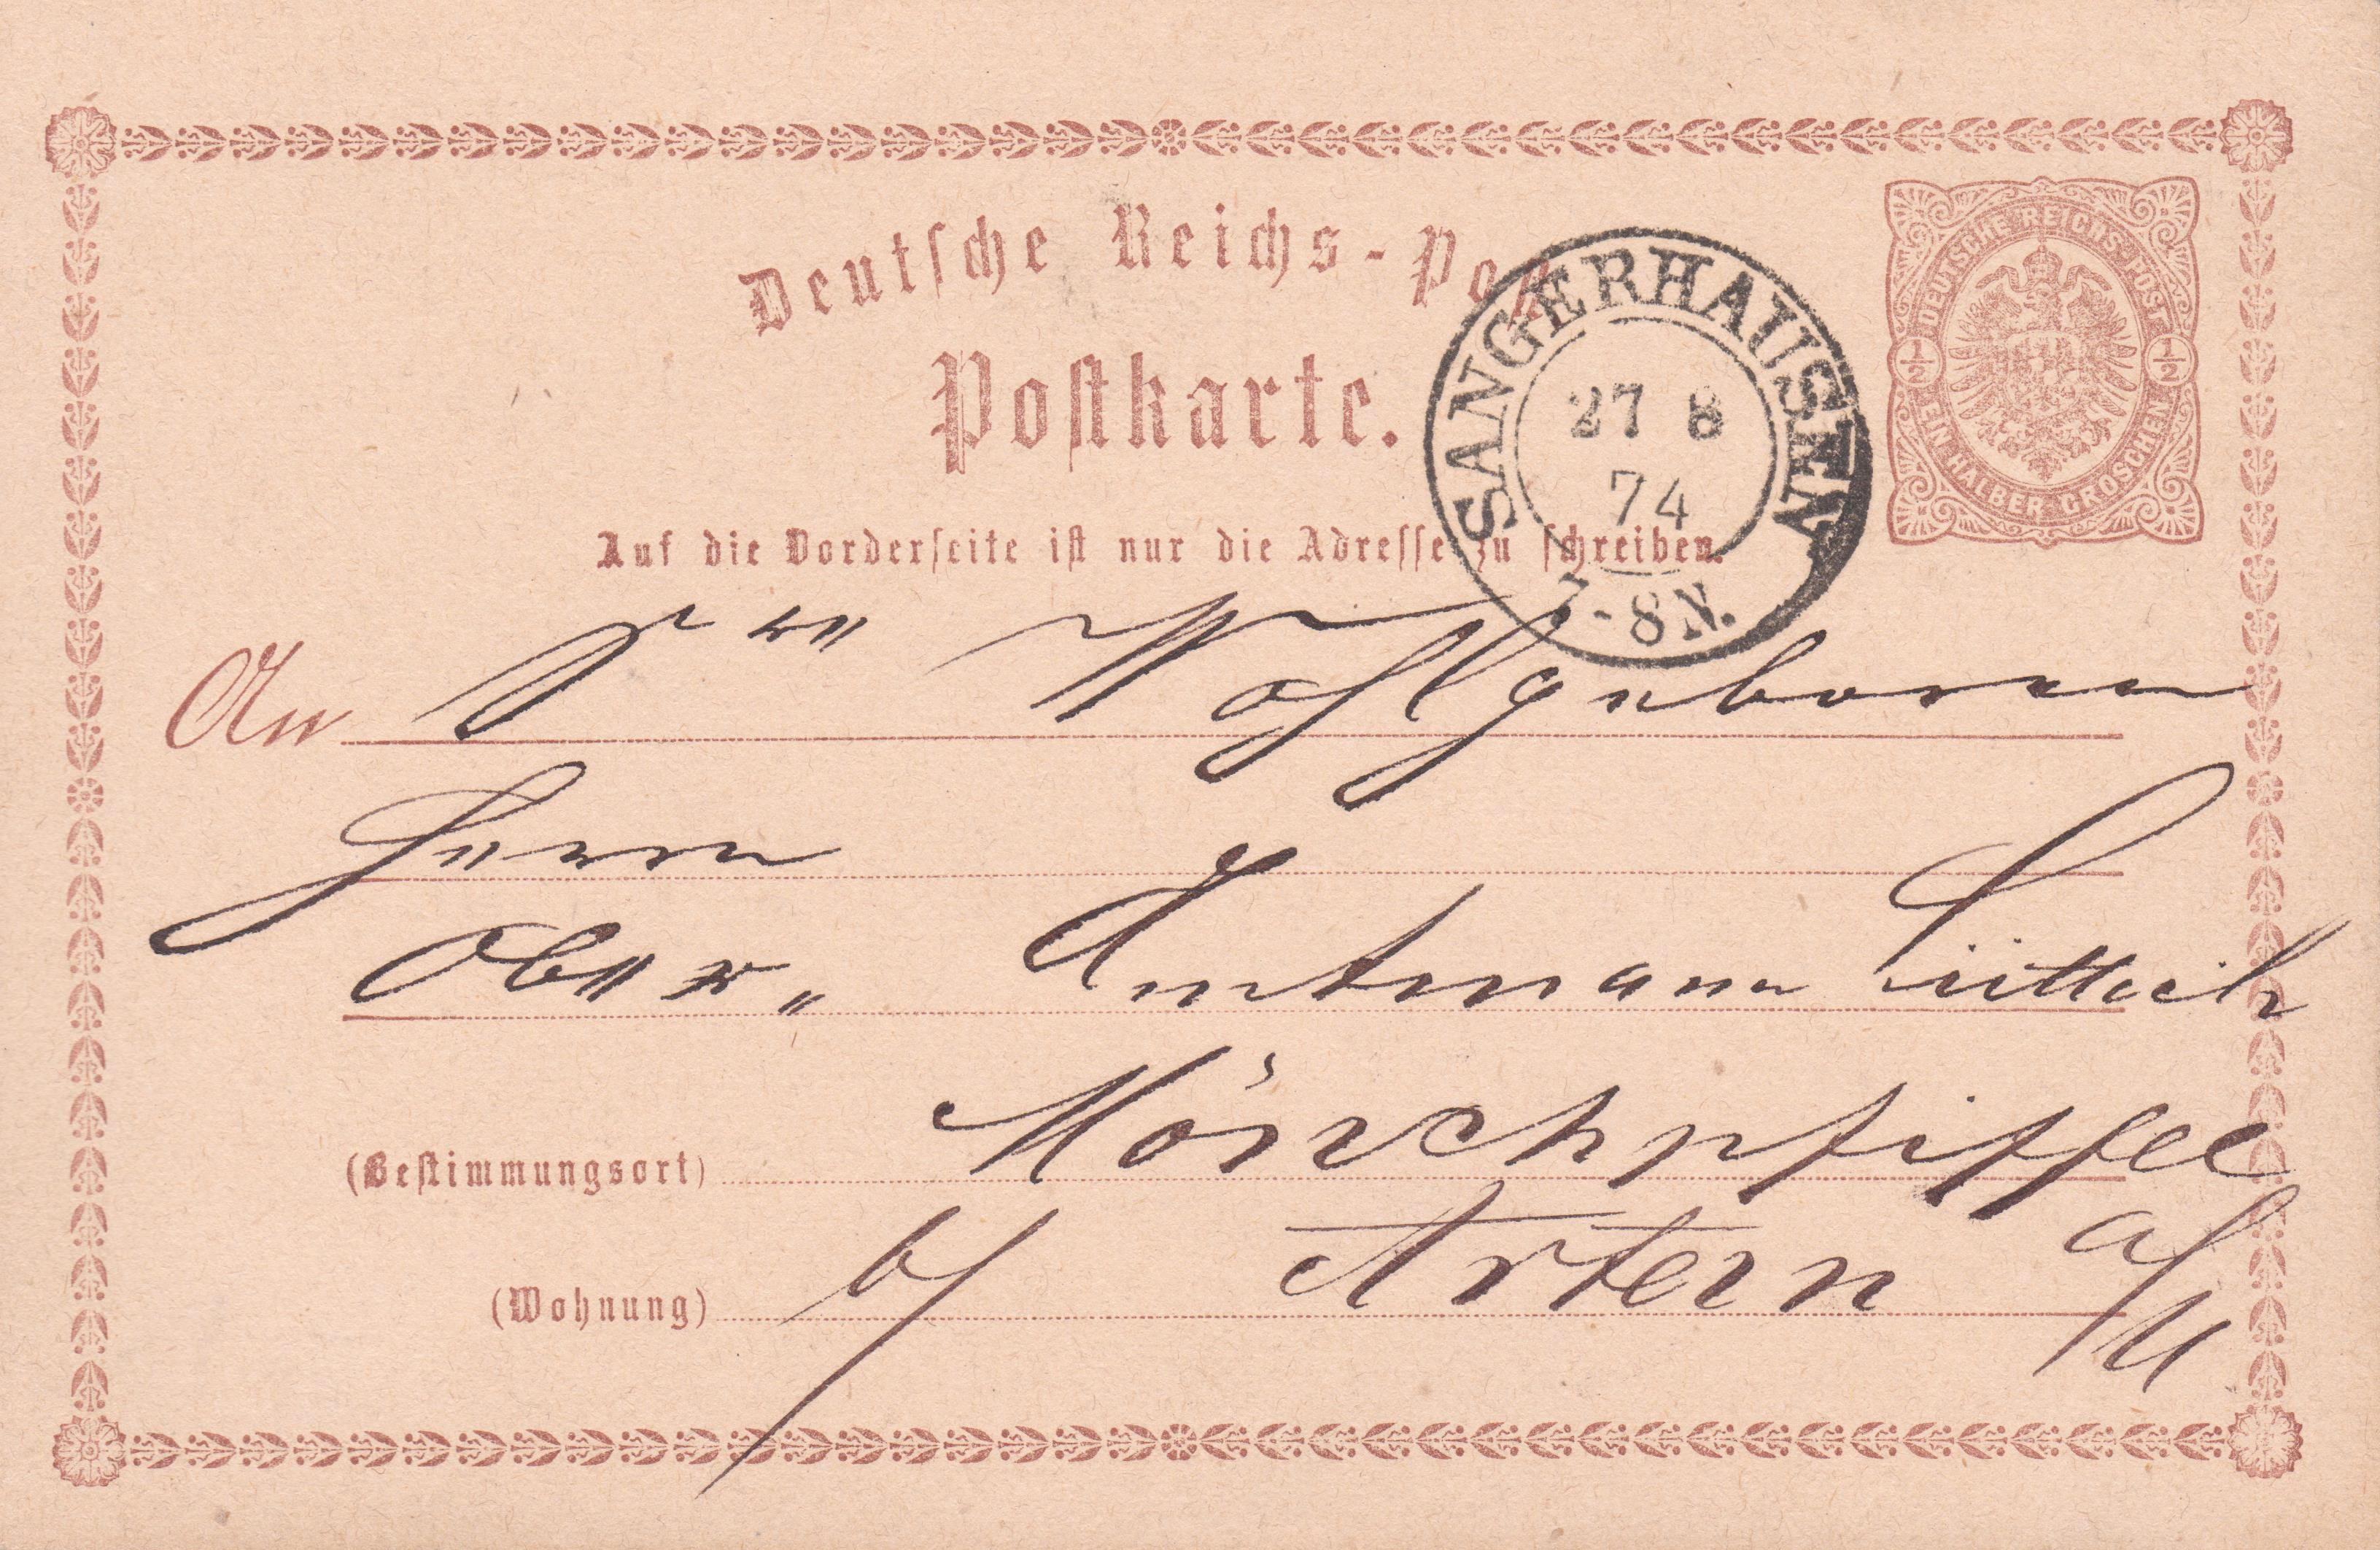 Deutsche Reichs-Post
Postkarte.
DEUTSCHE REICHS-POST
1/2 1/2
EIN HALBER GROSCHEN
SANGERHAUSEN
27 8
74
7-8 N.
Auf die Vorderseite ist nur die Adresse zu schreiben.
An Sr Wohlgeboren
Herrn
Ober- Amtmann Lüttich
(Bestimmungsort) Mönchpfiffel
(Wohnung) b/ Artern a/U